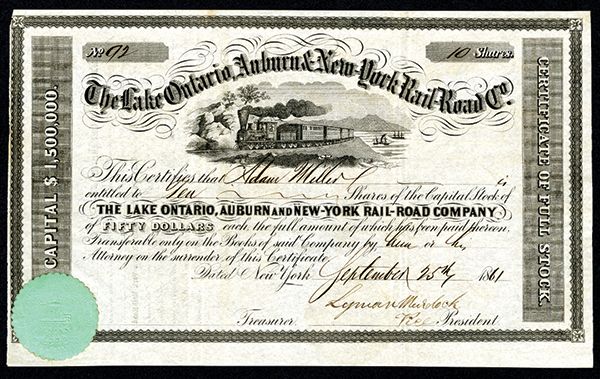 No 92
10 Shares.
The Lake Ontario, Auburn & New-York Rail-Road Co.
CAPITAL $ 1,500,000.
CERTIFICATE OF FULL STOCK
This Certifies that Adam Miller is
entitled to Ten Shares of the Capital Stock of
THE LAKE ONTARIO, AUBURN AND NEW-YORK RAIL-ROAD COMPANY
of FIFTY DOLLARS each the full amount of which has been paid thereon.
Transferable only on the Books of said Company by him or his
Attorney on the surrender of this Certificate.
Dated New York September 25th 1861
Lyman Murdock
Treasurer. Vice President